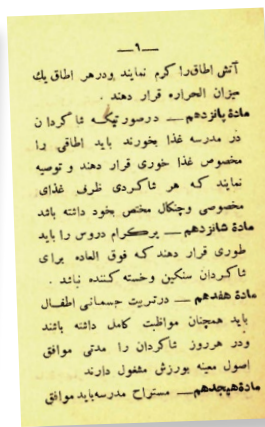 —٦—
آتش اطاق را گرم نمایند ودر هر اطاق یك
میزان الحراره قرار دهند .
مادۀ پانزدهم — درصورتیکه شاگردان
در مدرسه غذا بخورند باید اطاقی را
مخصوص غذا خوری قرار دهند و توصیه
نمایند که هر شاگردی ظرف غذای
مخصوصی وچنگال مختص بخود داشته باشد
مادۀ شانزدهم — پرگرام دروس را باید
طوری قرار دهند که فوق العاده برای
شاگردان سنگین وخسته کننده نباشد .
مادۀ هفدهم — درتربیت جسمانی اطفال
باید همچنان مواظبت کامل داشته باشند
ودر هرروز شاگردان را مدتی موافق
اصول معینه بورزش مشغول دارند
مادۀ هیجدهم — مستراح مدرسه باید موافق